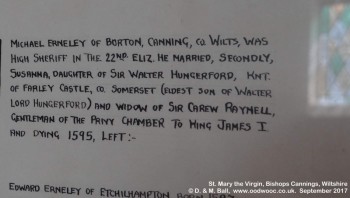 MICHAEL ERNELEY OF BORTON, CANNING, CO. WILTS, WAS
HIGH SHERIFF IN THE 22ND ELIZ. HE MARRIED, SECONDLY,
SUSANNA, DAUGHTER OF SIR WALTER HUNGERFORD, KNT.
OF FARLEY CASTLE, CO. SOMERSET (ELDEST SON OF WALTER
LORD HUNGERFORD) AND WIDOW OF SIR CAREW RAYNELL,
GENTLEMAN OF THE PRIVY CHAMBER TO KING JAMES I
AND DYING 1595, LEFT:-
EDWARD ERNELEY OF ETCHILHAMPTON, BORN
St. Mary the Virgin, Bishops Cannings, Wiltshire
© D. & M. Ball, www.oodwooc.co.uk. September 2017